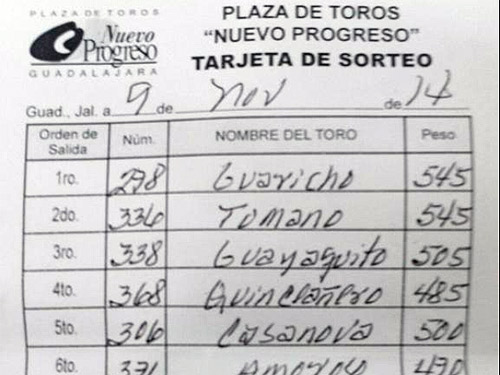 PLAZA DE TOROS
Nuevo
Progreso
GUADALAJARA
PLAZA DE TOROS
“NUEVO PROGRESO”
TARJETA DE SORTEO
Guad., Jal. a 9 de Nov de 14
Orden de Salida Núm. NOMBRE DEL TORO Peso
1ro. 298 Guaricho 545
2do. 336 Tumano 545
3ro. 338 Guayaquito 505
4to. 368 Quinceañero 485
5to. 306 Casanova 500
6to. 490